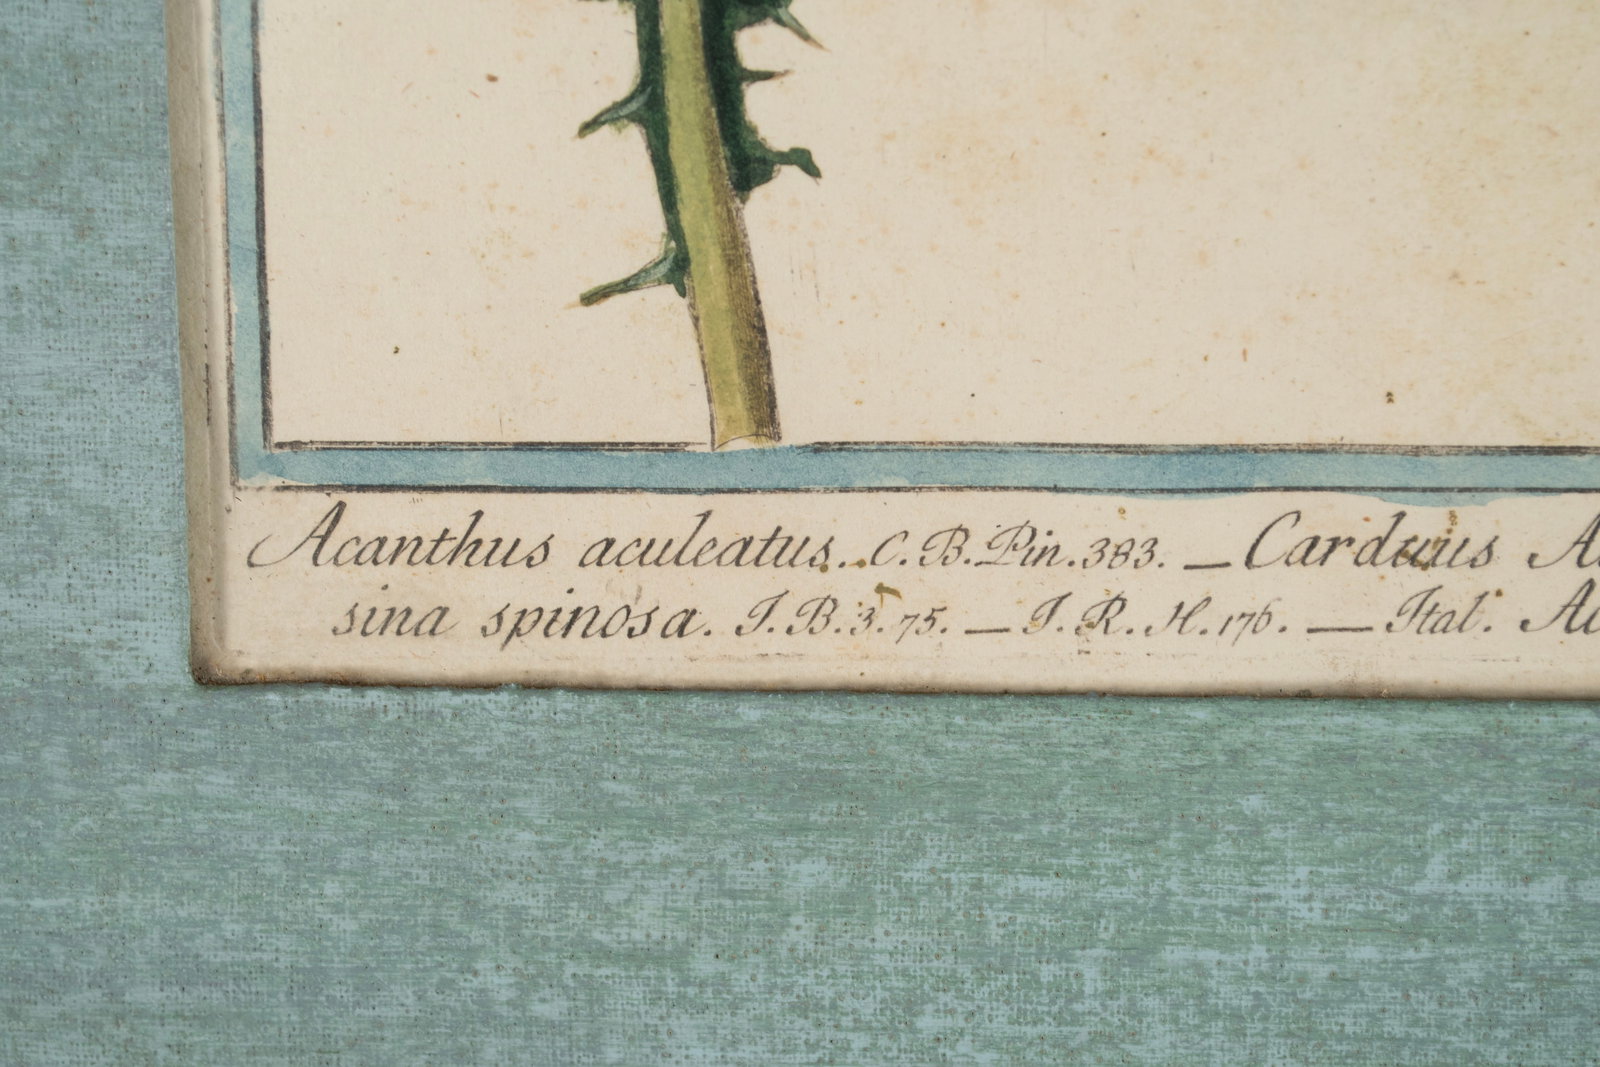 Acanthus aculeatus. C. B. Pin. 383. — Carduus
sina spinosa. I. B. 3. 75. — I. R. H. 176. — Ital.